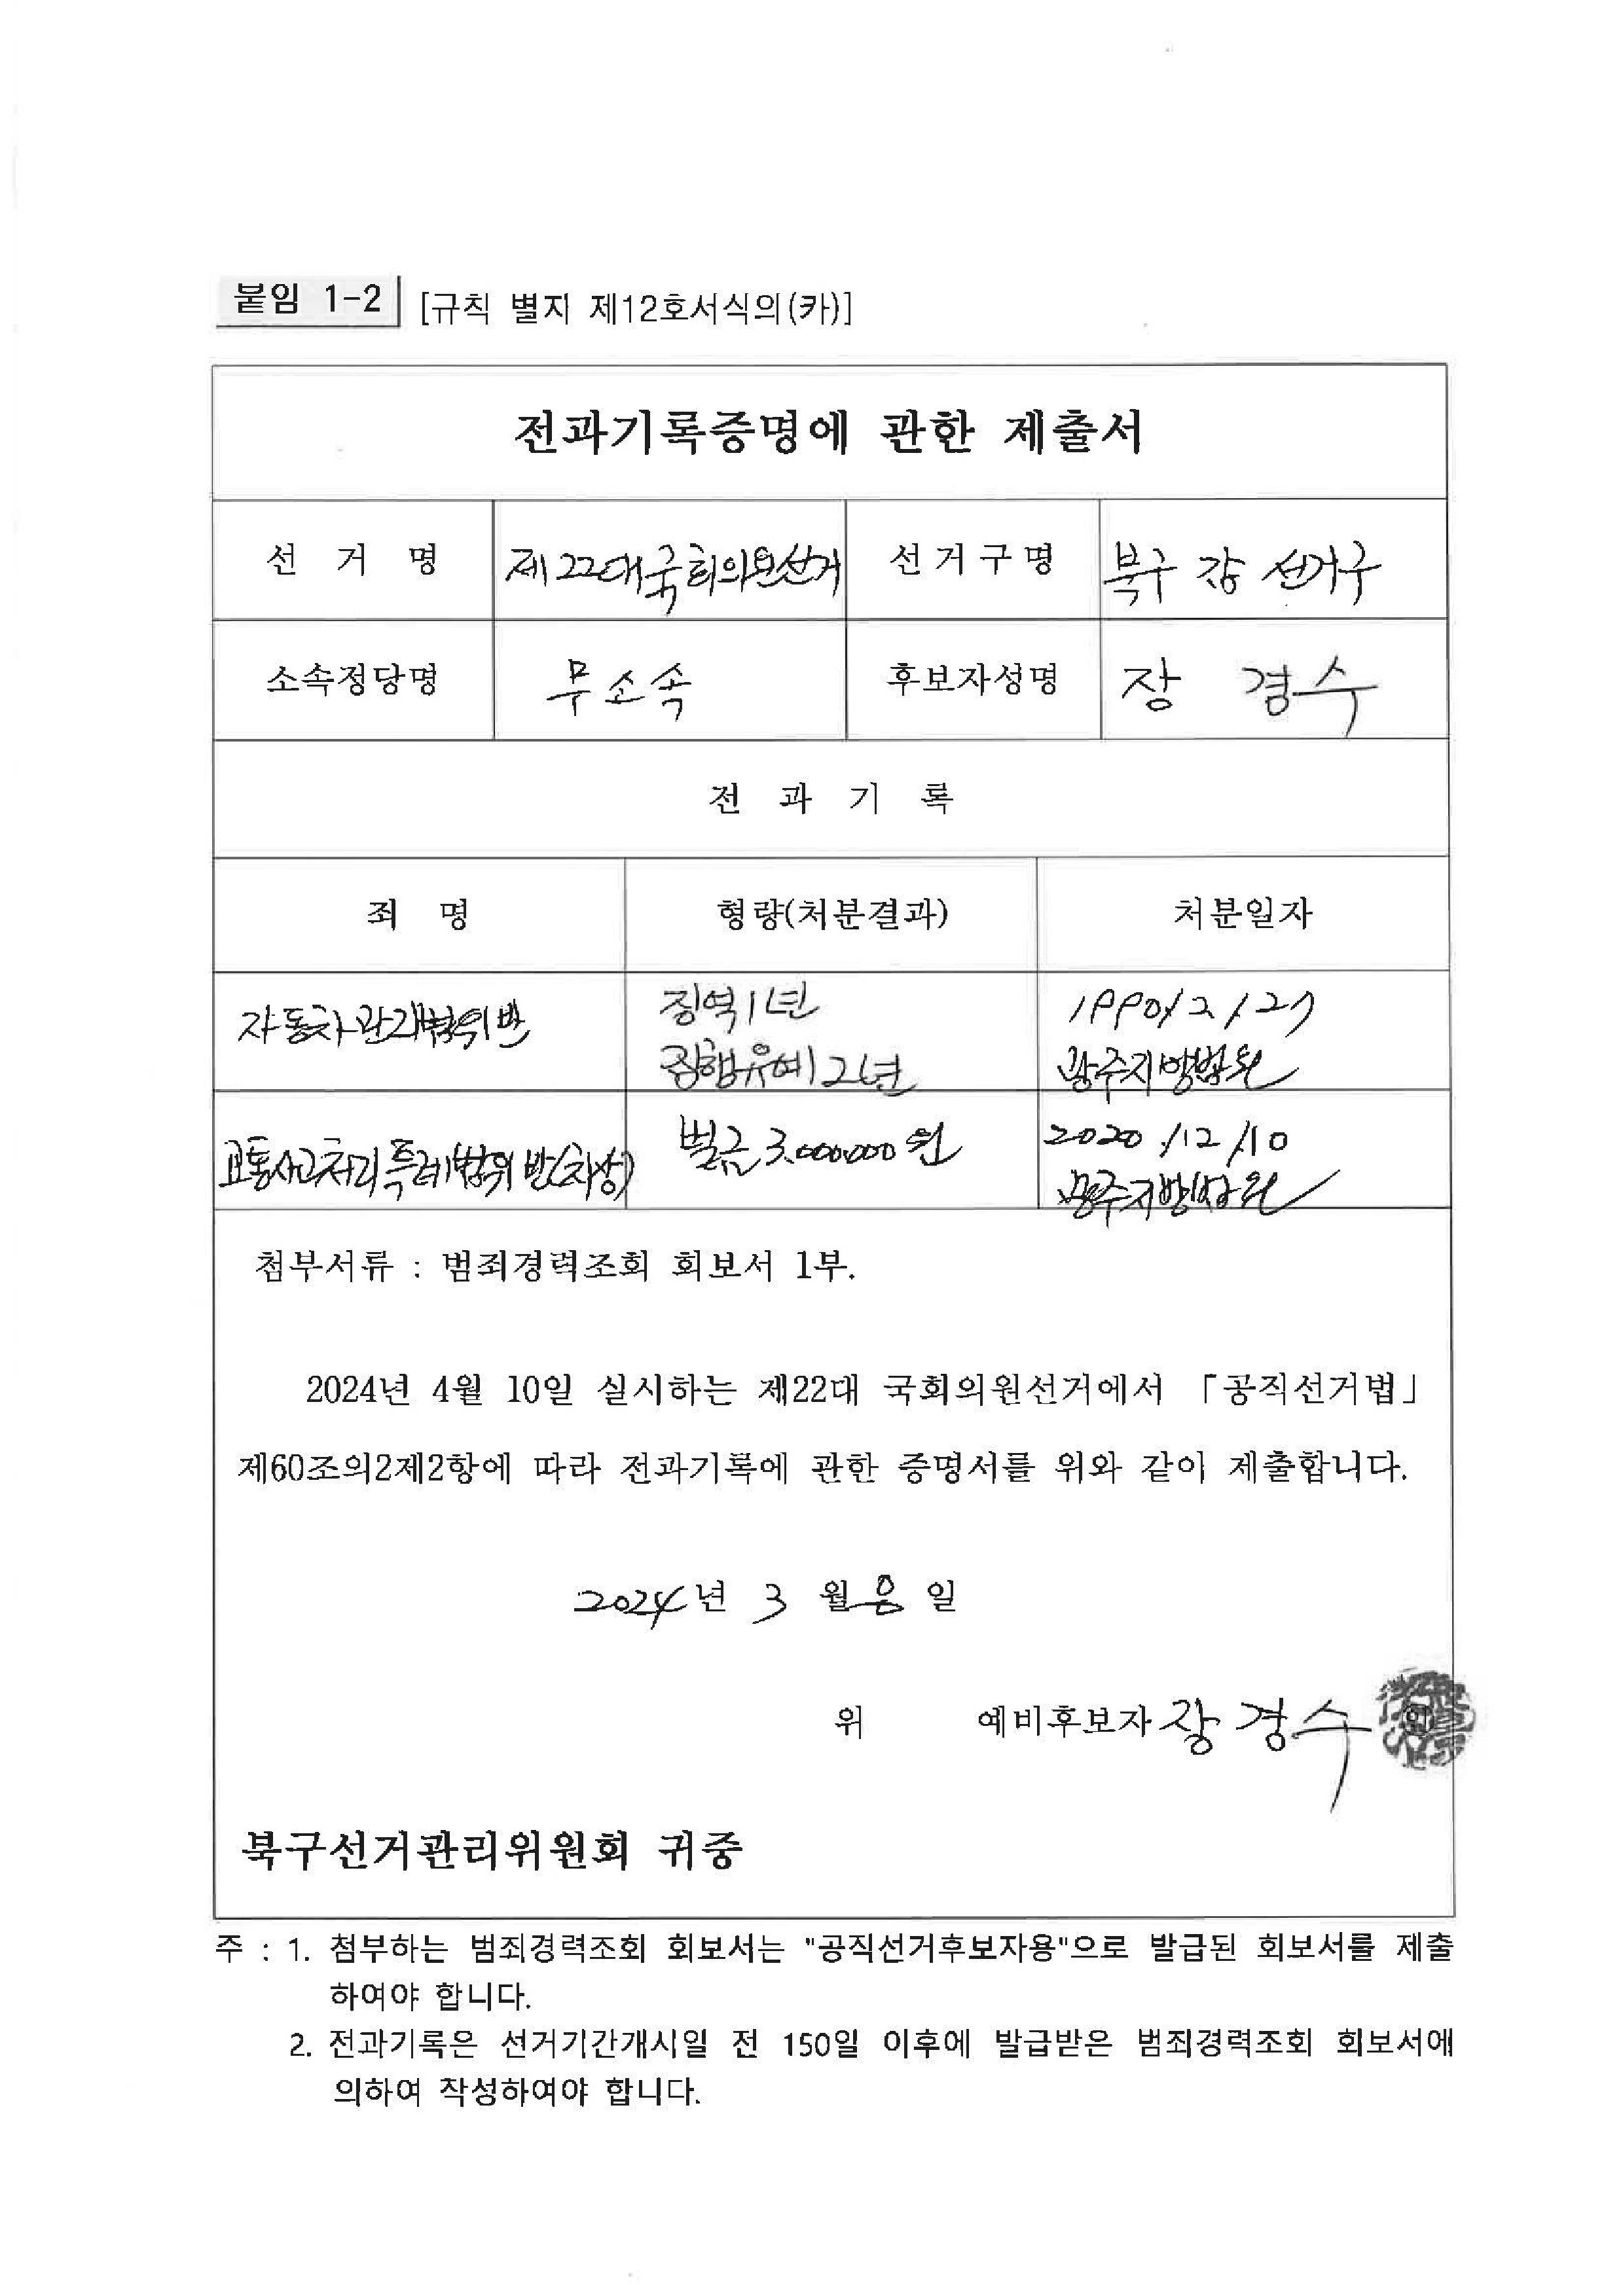 붙임 1-2 [규칙 별지 제12호서식의(카)]
전과기록증명에 관한 제출서
선 거 명 제22대국회의원선거 선거구명 북구 갑 선거구
소속정당명 무소속 후보자성명 장 경수
전 과 기 록
죄 명 형량(처분결과) 처분일자
자동차관리법위반 징역1년 1990/2/27
집행유예2년 광주지방법원
교통사고처리특례법위반(치상) 벌금 3,000,000원 2020/12/10
광주지방법원
첨부서류 : 범죄경력조회 회보서 1부.
2024년 4월 10일 실시하는 제22대 국회의원선거에서 「공직선거법」
제60조의2제2항에 따라 전과기록에 관한 증명서를 위와 같이 제출합니다.
2024년 3 월 8 일
위 예비후보자 장경수
북구선거관리위원회 귀중
주 : 1. 첨부하는 범죄경력조회 회보서는 "공직선거후보자용"으로 발급된 회보서를 제출
하여야 합니다.
2. 전과기록은 선거기간개시일 전 150일 이후에 발급받은 범죄경력조회 회보서에
의하여 작성하여야 합니다.